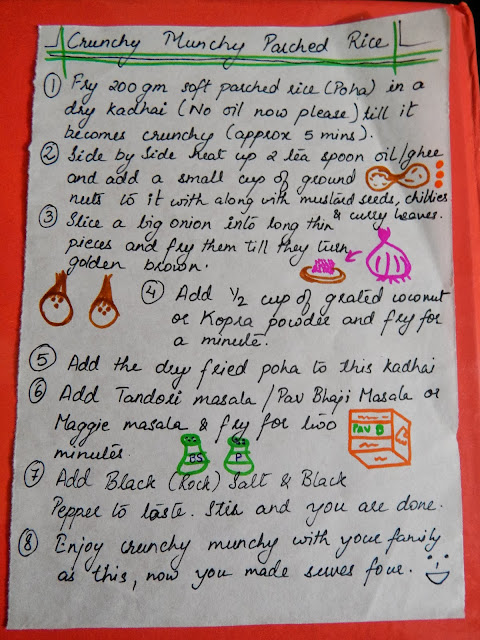 Crunchy Munchy Parched Rice
① Fry 200 gm soft parched rice (Poha) in a
dry kadhai (No oil now please) till it
becomes crunchy (approx 5 mins).
② Side by Side heat up 2 tea spoon oil/ghee
and add a small cup of ground
nuts to it with along with mustard seeds, chillies
& curry leaves.
③ Slice a big onion into long thin
pieces and fry them till they turn
golden brown.
④ Add 1/2 cup of grated coconut
or Kopra powder and fry for
a minute.
⑤ Add the dry fried poha to this kadhai
⑥ Add Tandori masala / Pav Bhaji Masala or
Maggie masala & fry for two
minutes.
PAV B
BS P
⑦ Add Black (Rock) Salt & Black
Pepper to taste. Stir and you are done.
⑧ Enjoy crunchy munchy with your family
as this, now you made serves four.